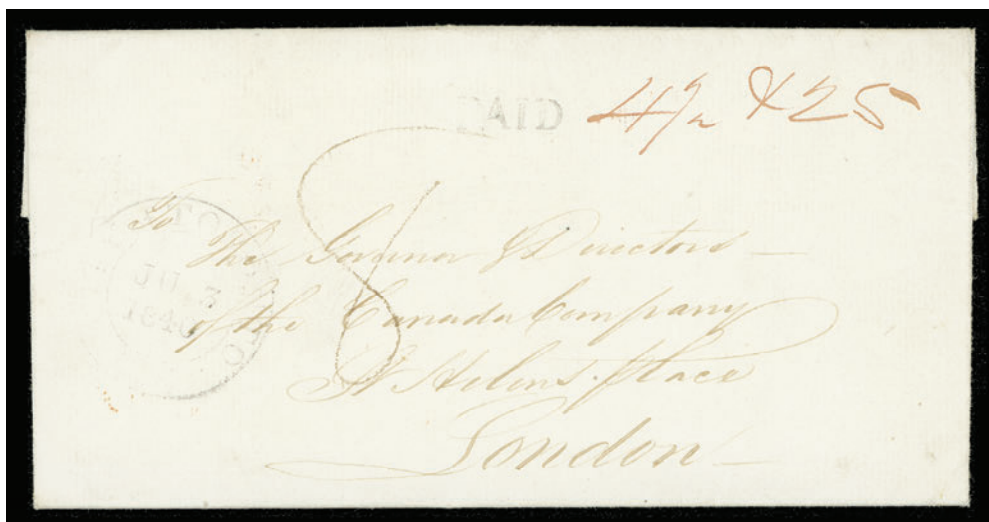 PAID 4½ & 25
8
To
The Governor & Directors
of the Canada Company
St Helens place
London